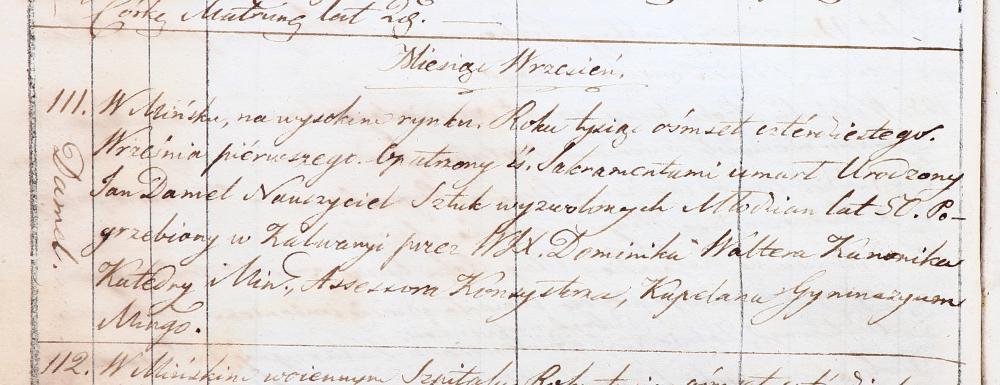 Córkę Matrunę lat 28.
Miesiąc Wrzesień.
111. W Mińsku, na wysokim rynku. Roku tysiąc ośmset czterdziestego.
Września piérwszego. Opatrzony śś. Sakramentami umarł Urodzony
Jan Damel Nauczyciel Sztuk wyzwolonych Młodzian lat 50. Po-
grzebiony w Kalwaryi przez WJX. Dominika Waltera Kanonika
Katedry Miń., Assessora Konsystorza, Kapelana Gymnazyum
Mingo.
Damel.
112. W Mińskim woiennym Szpitalu Roku